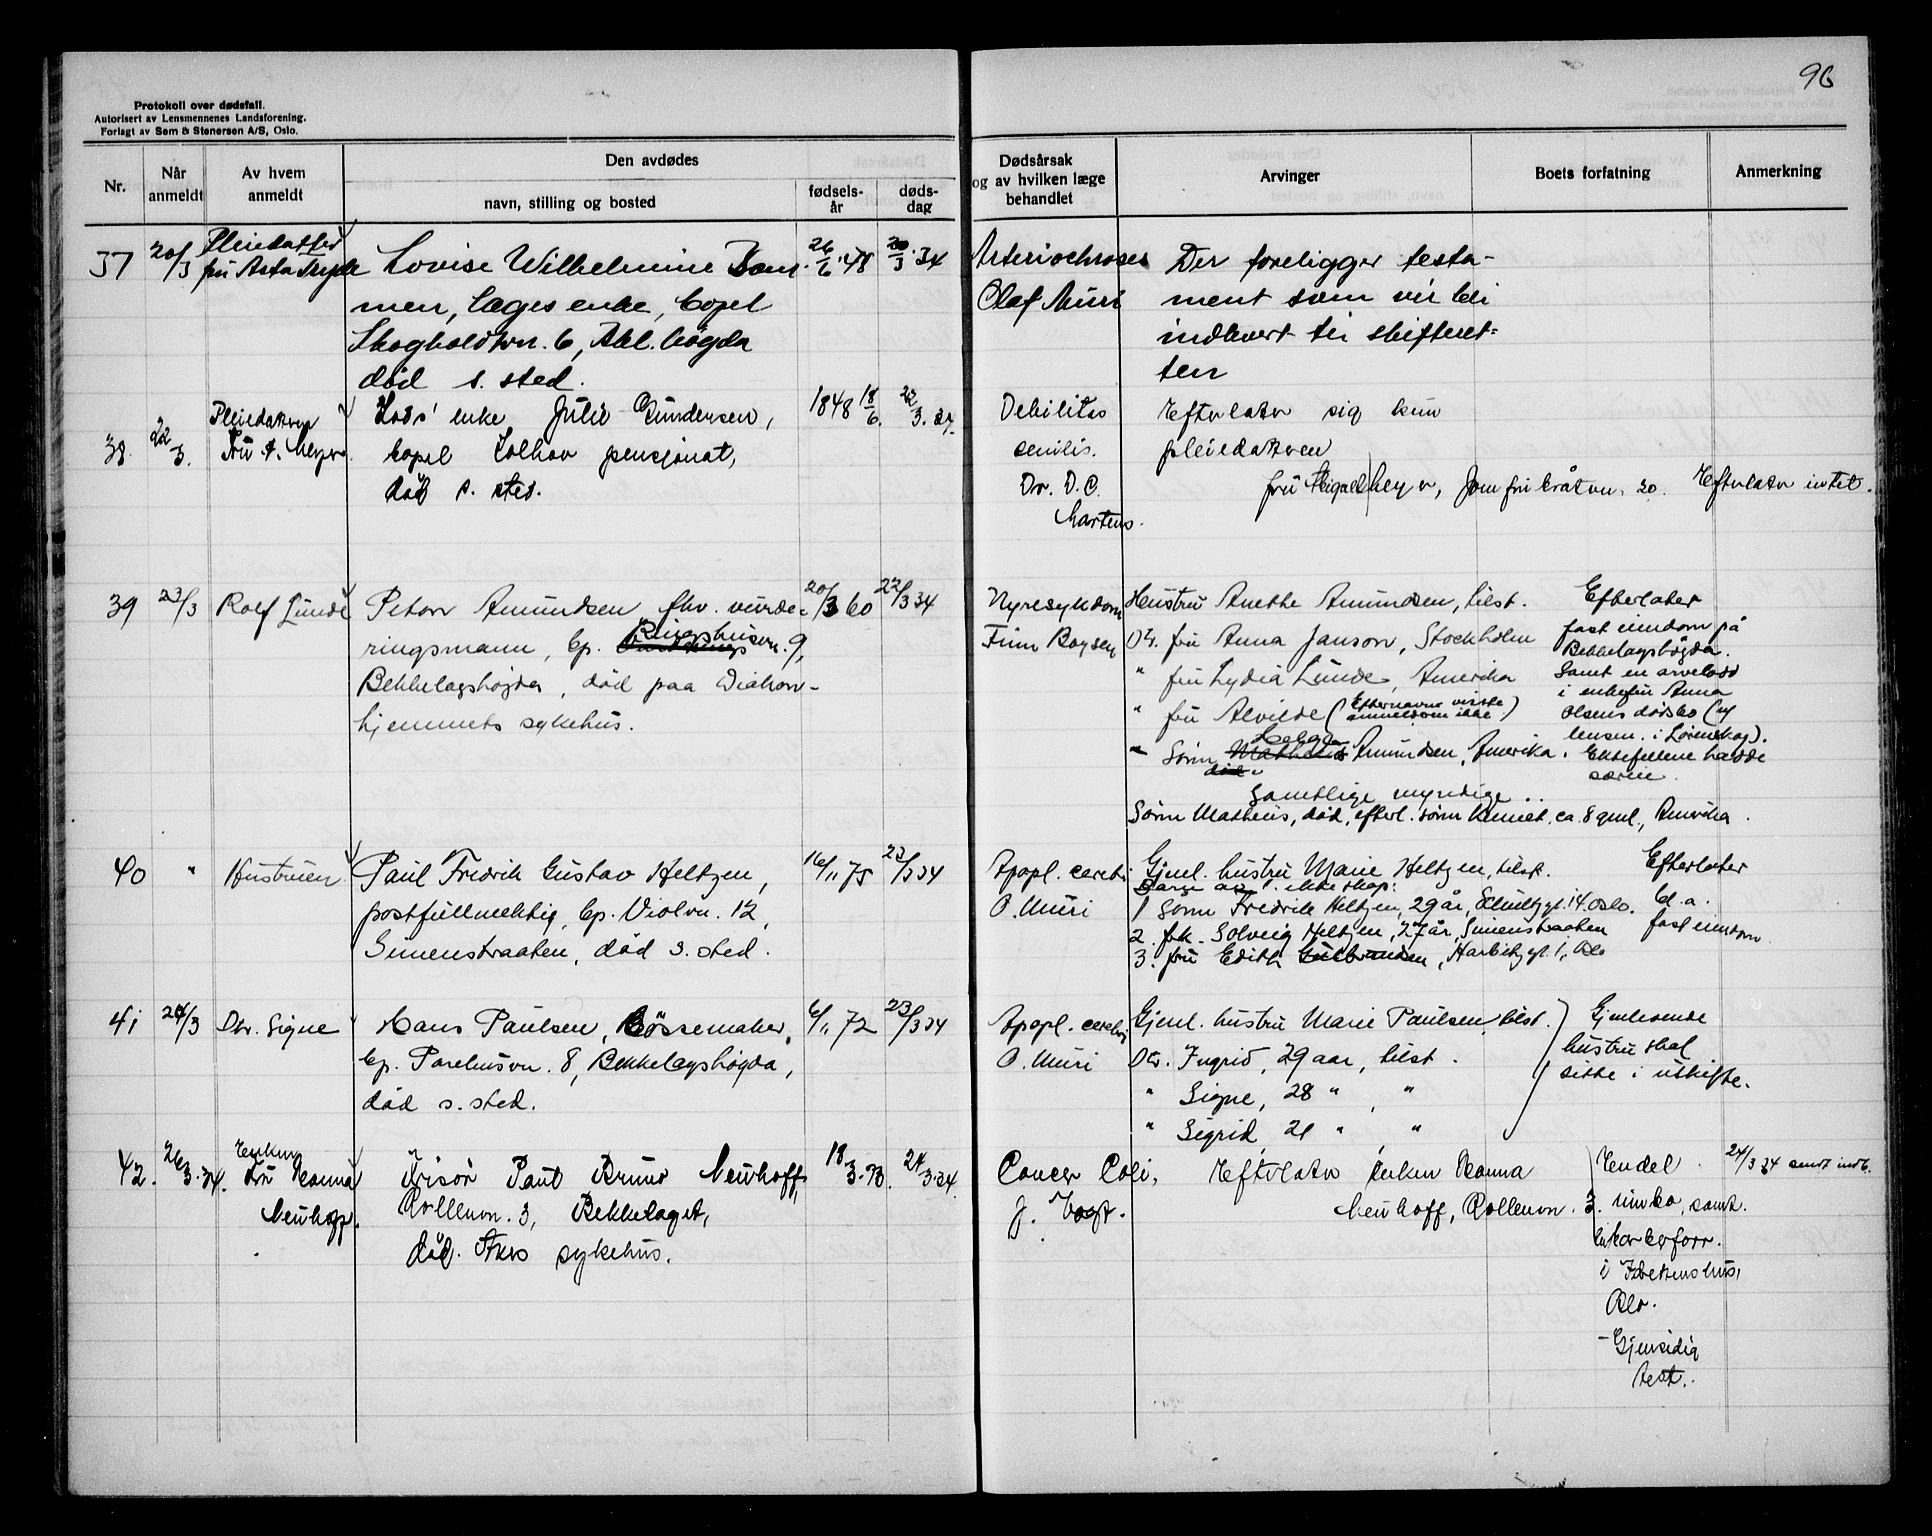 96
Protokoll over dødsfall.
Autorisert av Lensmennenes Landsforening.
Forlagt av Sem & Stenersen A/S, Oslo.
Nr.
Når anmeldt
Av hvem anmeldt
Den avdødes
navn, stilling og bosted
fødselsår
dødsdag
Dødsårsak og av hvilken læge behandlet
Arvinger
Boets forfatning
Anmerkning
37 20/3 Pleiedatter
fru Asta
Lovise Wilhelmine
men, læges enke, bopel
Skogholdtvn. 6,
død s. sted.
26/6.48 20/3.34
Olaf Muri
Der foreligger testa-
ment som vil bli
indlevert til skifteret-
ten
38 22/3. Pleiedatteren
Fru A. Meyer
Lods' enke Julie Gundersen,
bopel Solhov pensjonat,
død s. sted.
1848 18/6. 22/3.34.
Debilitas
senilis.
Dr. D. C.
Martens.
Efterlater sig kun
pleiedatteren
fru Meyer, Jomfrubråtvn. 20. Efterlater intet.
39 23/3 Rolf Lunde
Petter Amundsen, fhv. vurde-
ringsmann, bp. Ringshusvn. 9,
Bekkelagshøgda, død paa Diakon-
hjemmets sykehus.
20/3 60 22/3 34
Nyresykdom
Finn Boysen
Hustru Anethe Amundsen, tilst.
Dtr. fru Anna Janson, Stockholm
" fru Lydia Lunde, Amerika
" fru Alvilde (Efternavne visste
anmelderen ikke)
" Sønn Amundsen, Amerika.
død
Samtlige myndige.
Sønn Matheus, død, efterl. sønn Kennet, ca. 8 gml., Amerika.
Efterlater
fast eiendom på
Bekkelagshøgda.
Samt en arvelodd
i enkefru Anna
Olsens dødsbo (
lensm. i Lørenskog).
Ektefellene hadde
særeie.
40 " Hustruen
Paul Fredrik Gustav Heltzen,
postfullmektig, bp. Violvn. 12,
Simenstraaten, død s. sted.
16/11 75 23/3 34
Apopl. cerebri
O. Muri
Gjenl. hustru Marie Heltzen, tilst.
Barn av 1. ekteskap:
1 Sønn Fredrik Heltzen, 29 år, Schultzgt. 14. Oslo.
2. frk. Solveig Heltzen, 27 år, Simenstraaten
3. fru Edith Gulbrandsen, Harbitzgt. 1, Oslo
Efterlater
bl. a.
fast eiendom.
41 24/3 Dtr. Signe
Hans Paulsen, Bøssemaker,
bp. Parelliusvn. 8, Bekkelagshøgda,
død s. sted.
6/11 72 23/3 34
Apopl. cerebri
O. Muri
Gjenl. hustru Marie Paulsen, tilst.
Dtr. Ingrid, 29 aar, tilst.
" Signe, 28 " , "
" Sigrid, 21 " , "
Gjenlevende
hustru skal
sitte i uskifte.
42. 26/3.34. Enken
Fru Hanna
Neuhoff.
Frisør Paul Bruno Neuhoff,
Rolleuvn. 3, Bekkelaget,
død. Akers sykehus.
18/3.73. 24/3.34.
Cancer Coli.
J. Vogt.
Efterlater enken Hanna
Neuhoff, Rolleuvn. 3.
Endel
innbo, samt.
i
Oslo.
- Gjensidig
test.
24/3 34 sendt indb.